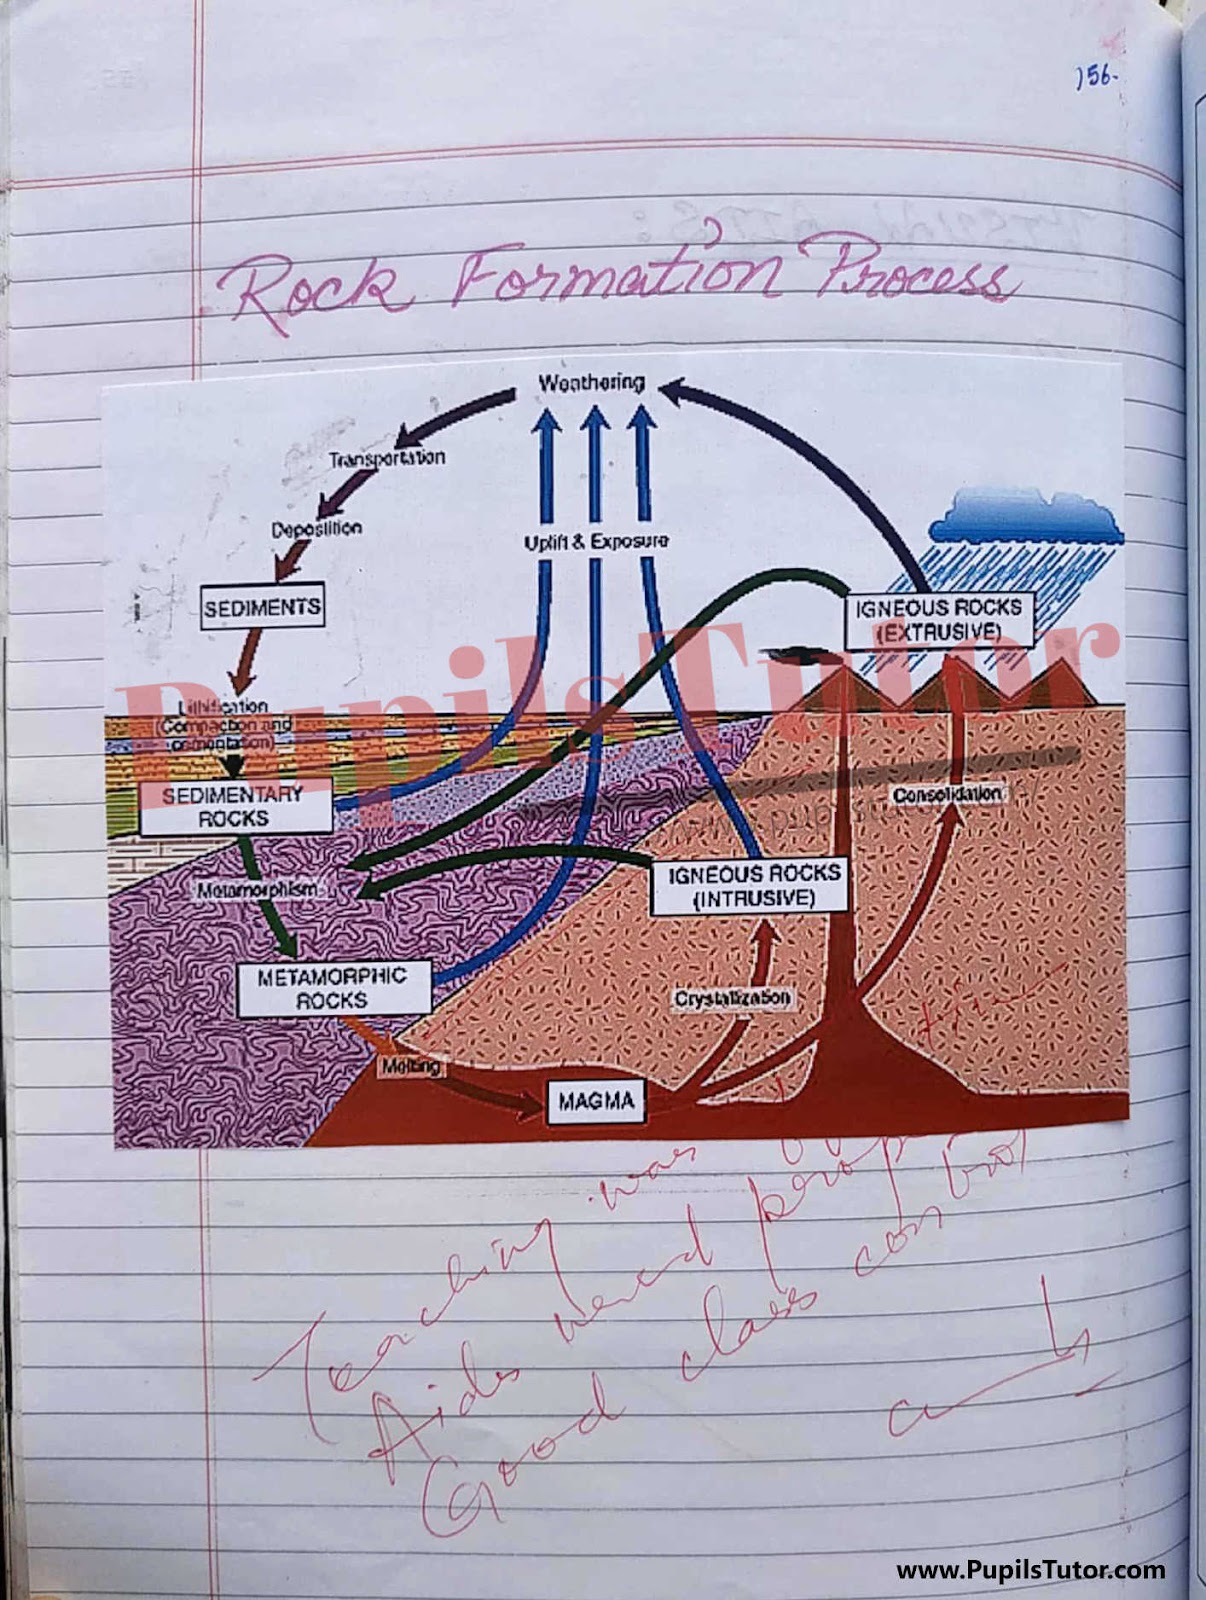 156.
Rock Formation Process
Weathering
Transportation
Deposition
Uplift & Exposure
SEDIMENTS
IGNEOUS ROCKS
(EXTRUSIVE)
PupilsTutor
Lithification
(Compaction and
cementation)
SEDIMENTARY
ROCKS
Consolidation
Metamorphism
IGNEOUS ROCKS
(INTRUSIVE)
METAMORPHIC
ROCKS
Crystallization
Melting
MAGMA
Teaching was
Aids used
Good class control
www.PupilsTutor.com